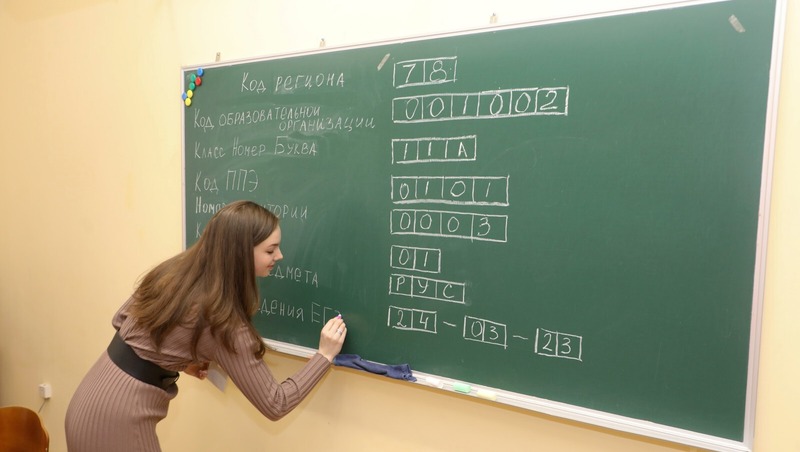 Код региона 78
Код образовательной организации 001002
Класс Номер Буква 11А
Код ППЭ 0101
0003
01
РУС
24 - 03 - 23